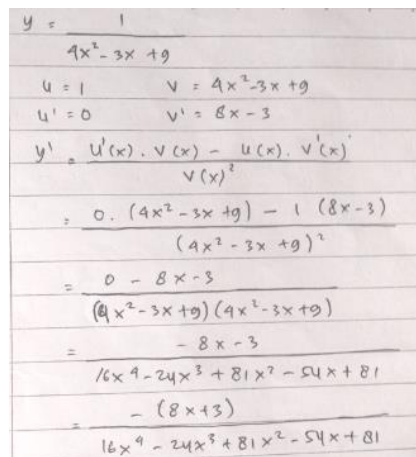 y = 1 / (4x² - 3x + 9)
u = 1 v = 4x² - 3x + 9
u' = 0 v' = 8x - 3
y' = (u'(x) . v(x) - u(x) . v'(x)) / v(x)²
= (0 . (4x² - 3x + 9) - 1 (8x - 3)) / (4x² - 3x + 9)²
= (0 - 8x - 3) / ((4x² - 3x + 9)(4x² - 3x + 9))
= (- 8x - 3) / (16x⁴ - 24x³ + 81x² - 54x + 81)
= - (8x + 3) / (16x⁴ - 24x³ + 81x² - 54x + 81)